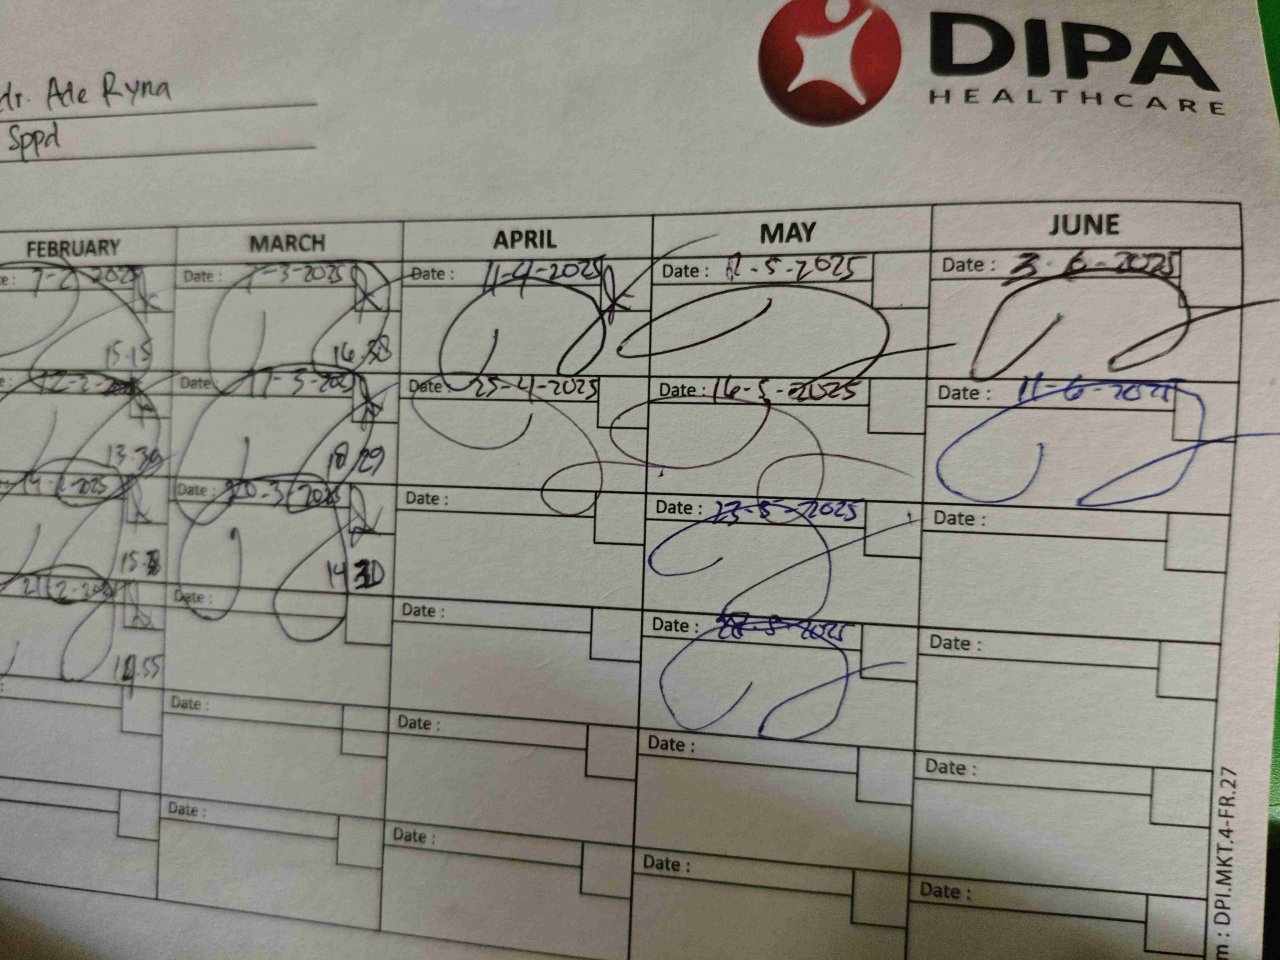 DIPA
HEALTHCARE
dr. Ade Ryna
Sppd
FEBRUARY MARCH APRIL MAY JUNE
7-2 2025 Date : 7-3-2025 Date : 11-4-2025 Date : 12-5-2025 Date : 3-6-2025
15.15 16.38
12-2-2025 Date : 17-3-2025 Date : 25-4-2025 Date : 16-5-2025 Date : 11-6-2025
13.30 18 29
14-2-2025 Date : 20-3-2025 Date : Date : 23-5-2025 Date :
15. 14
21-2-2025 Date : Date : Date : 28-5-2025 Date :
.55
Date : Date : Date : Date :
Date : Date : Date : Date :
m : DPI.MKT.4-FR.27